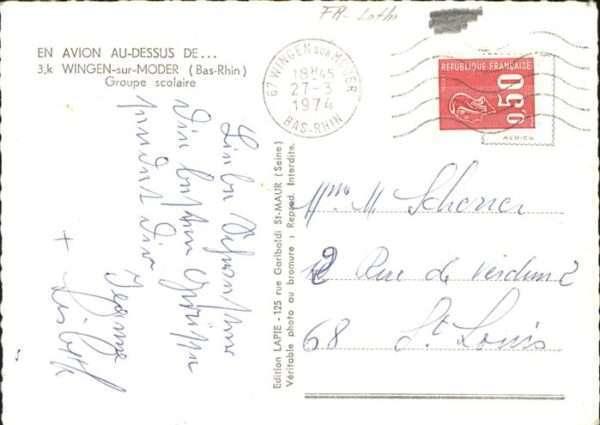 FR-
EN AVION AU-DESSUS DE...
3,k WINGEN-sur-MODER (Bas-Rhin)
Groupe scolaire
67 WINGEN SUR MODER
18H45
27-3
1974
BAS-RHIN
REPUBLIQUE-FRANÇAISE
0,50
Liebe
Die besten Grüsse
sendet Dir
Jeanne
+
Edition LAPIE - 125 rue Garibaldi ST-MAUR (Seine)
Véritable photo au bromure : Reprod. Interdite.
Mme M. Scherrer
2 Rue de Verdun
68 St Louis